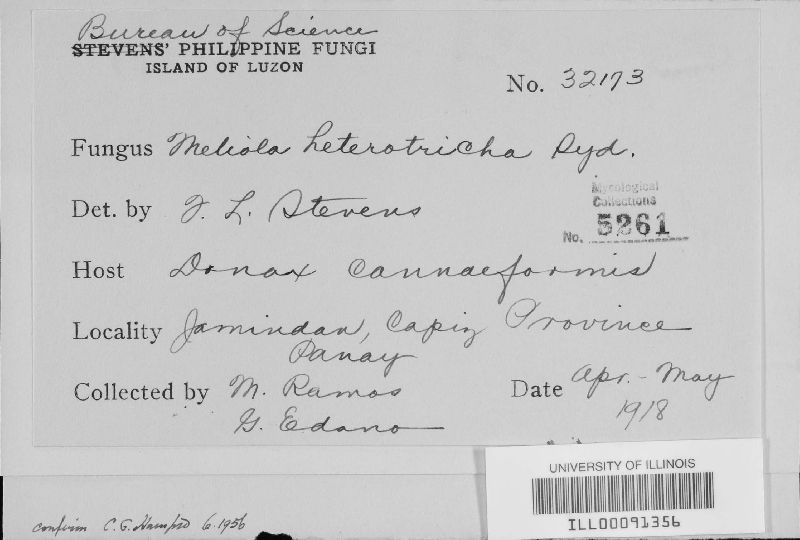 Bureau of Science
STEVENS' PHILIPPINE FUNGI
ISLAND OF LUZON
No. 32173
Fungus Meliola heterotricha Syd.
Det. by F. L. Stevens
Mycological
Collections
No. 5261
Host Donax cannaeformis
Locality Jamindan, Capiz Province
Panay
Collected by M. Ramos
G. Edano
Date Apr. - May
1918
UNIVERSITY OF ILLINOIS
ILL00091356
confirm C. G. Hansford 6. 1956